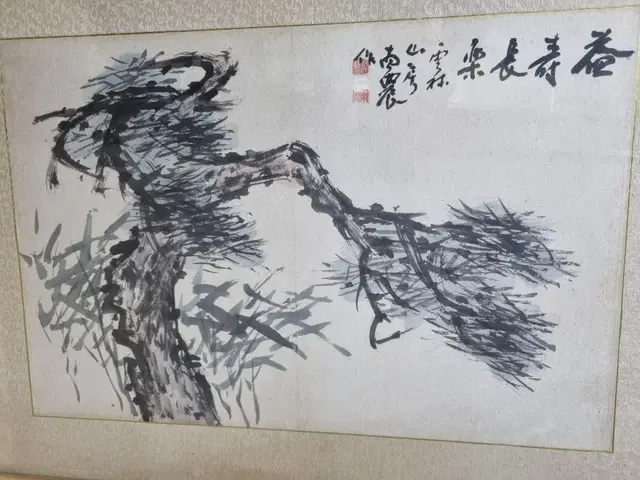 益壽長樂
雲林
山房
南農
作